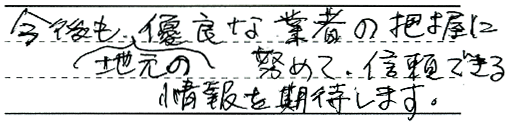 今後も、優良な業者の把握に
地元の 努めて、信頼できる
情報を期待します。